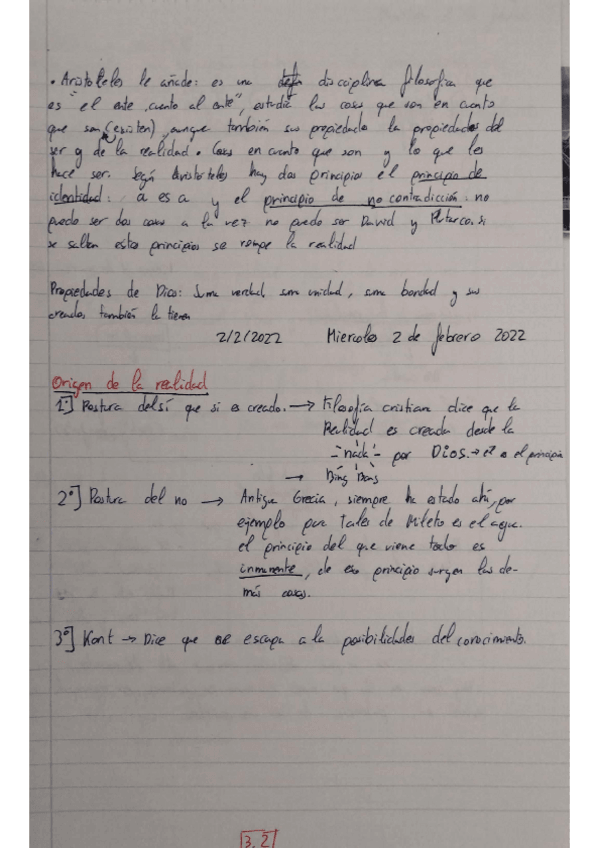 • Aristoteles le añade: es una disciplina filosofica que
es "el ente cuanto al ente", estudia las cosas que son en cuanto
que son (existen), aunque también sus propiedades la propiedades del
ser y de la realidad. Cosas en cuanto que son y lo que les
hace ser. Según Aristoteles hay dos principios el principio de
identidad: a es a y el principio de no contradicción: no
puedo ser dos cosas a la vez no puedo ser David y si
se saltan estos principios se rompe la realidad
Propiedades de Dios: Suma verdad, suma unidad, suma bondad y sus
creados también la tienen
2/2/2022 Miercoles 2 de febrero 2022
Origen de la realidad
1º] Postura del sí que si es creado. → Filosofía cristiana dice que la
Realidad es creada desde la
- nada - por Dios. → el principio
→ Bing Bang
2º] Postura del no → Antigua Grecia, siempre ha estado ahí, por
ejemplo para Tales de Mileto es el agua.
el principio del que viene todo es
inmanente, de ese principio surgen las de-
más cosas.
3º] Kant → Dice que se escapa a la posibilidades del conocimiento.
3.2